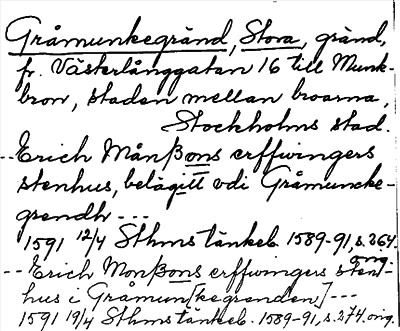 Gråmunkegränd, Stora, gränd,
fr. Västerlånggatan 16 till Munk-
bron, staden mellan broarna,
Stockholms stad.
--Erich Månßons erffwingers
stenhus, belägitt vdi Gråmuncke-
grendh ---
1591 12/4 Sthms tänkeb. 1589-91, s. 264.
orig.
-- Erich Monßons erffwingers sten-
hus i Gråmun[kegrenden] ---
1591 19/4 Sthms tänkeb. 1589-91, s. 274. orig.